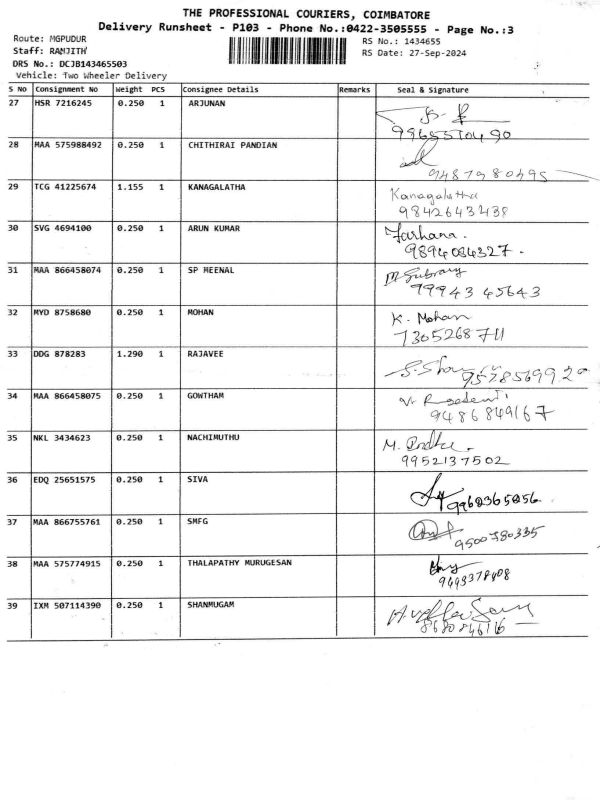 THE PROFESSIONAL COURIERS, COIMBATORE
Delivery Runsheet - P103 - Phone No.:0422-3505555 - Page No.:3
Route: MGPUDUR
RS No.: 1434655
Staff: RAMJITH
RS Date: 27-Sep-2024
DRS No.: DCJB143465503
Vehicle: Two Wheeler Delivery
S No Consignment No Weight PCS Consignee Details Remarks Seal & Signature
27 HSR 7216245 0.250 1 ARJUNAN
28 MAA 575988492 0.250 1 CHITHIRAI PANDIAN
29 TCG 41225674 1.155 1 KANAGALATHA Kanagalatha
9842643438
30 SVG 4694100 0.250 1 ARUN KUMAR Farhana.
9894084327.
31 MAA 866458074 0.250 1 SP MEENAL
99943 45643
32 MYD 8758680 0.250 1 MOHAN K. Mohan
7305268711
33 DDG 878283 1.290 1 RAJAVEE
34 MAA 866458075 0.250 1 GOWTHAM
9486849167
35 NKL 3434623 0.250 1 NACHIMUTHU
9952137502
36 EDQ 25651575 0.250 1 SIVA
37 MAA 866755761 0.250 1 SMFG
9500780335
38 MAA 575774915 0.250 1 THALAPATHY MURUGESAN
39 IXM 507114390 0.250 1 SHANMUGAM